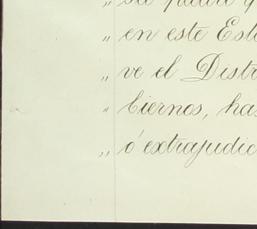 „ en este Est
„ ve el Distr
„ biernos, has
„ ó extrajudic